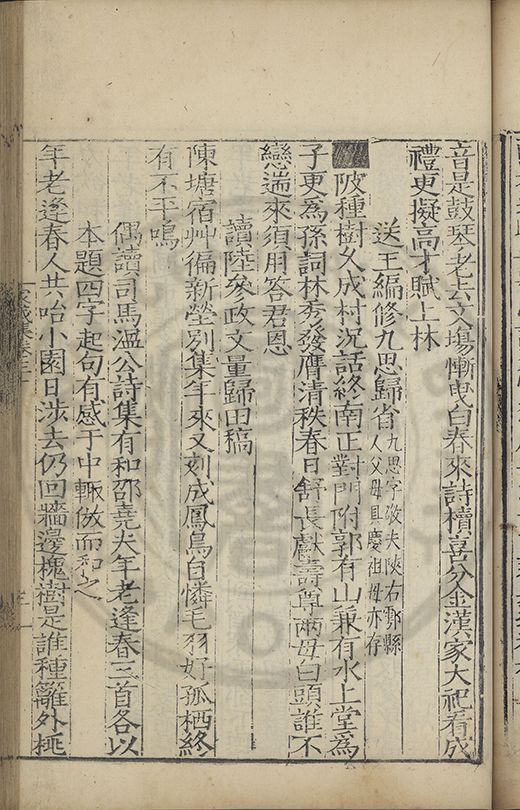 音是鼓琴老去文塲慚曳白春來詩櫝喜分金漢家大祀看成
禮更擬高才賦上林
送王編修九思歸省九思字敬夫陝右鄠縣人父母具慶祖母亦存
陂種樹久成村況話終南正對門附郭有山兼有水上堂為
子更為孫詞林秀發膺清秩春日舒長獻壽尊兩母白頭誰不
戀遄來須用答君恩
讀陸參政文量歸田稿
陳塘宿艸徧新塋別集年來又刻成鳳鳥自憐毛羽好孤栖終
有不平鳴
偶讀司馬溫公詩集有和邵堯夫年老逢春三首各以
本題四字起句有感于中輙倣而和之
年老逢春人共咍小園日渉去仍回牆邊槐樹是誰種籬外桃